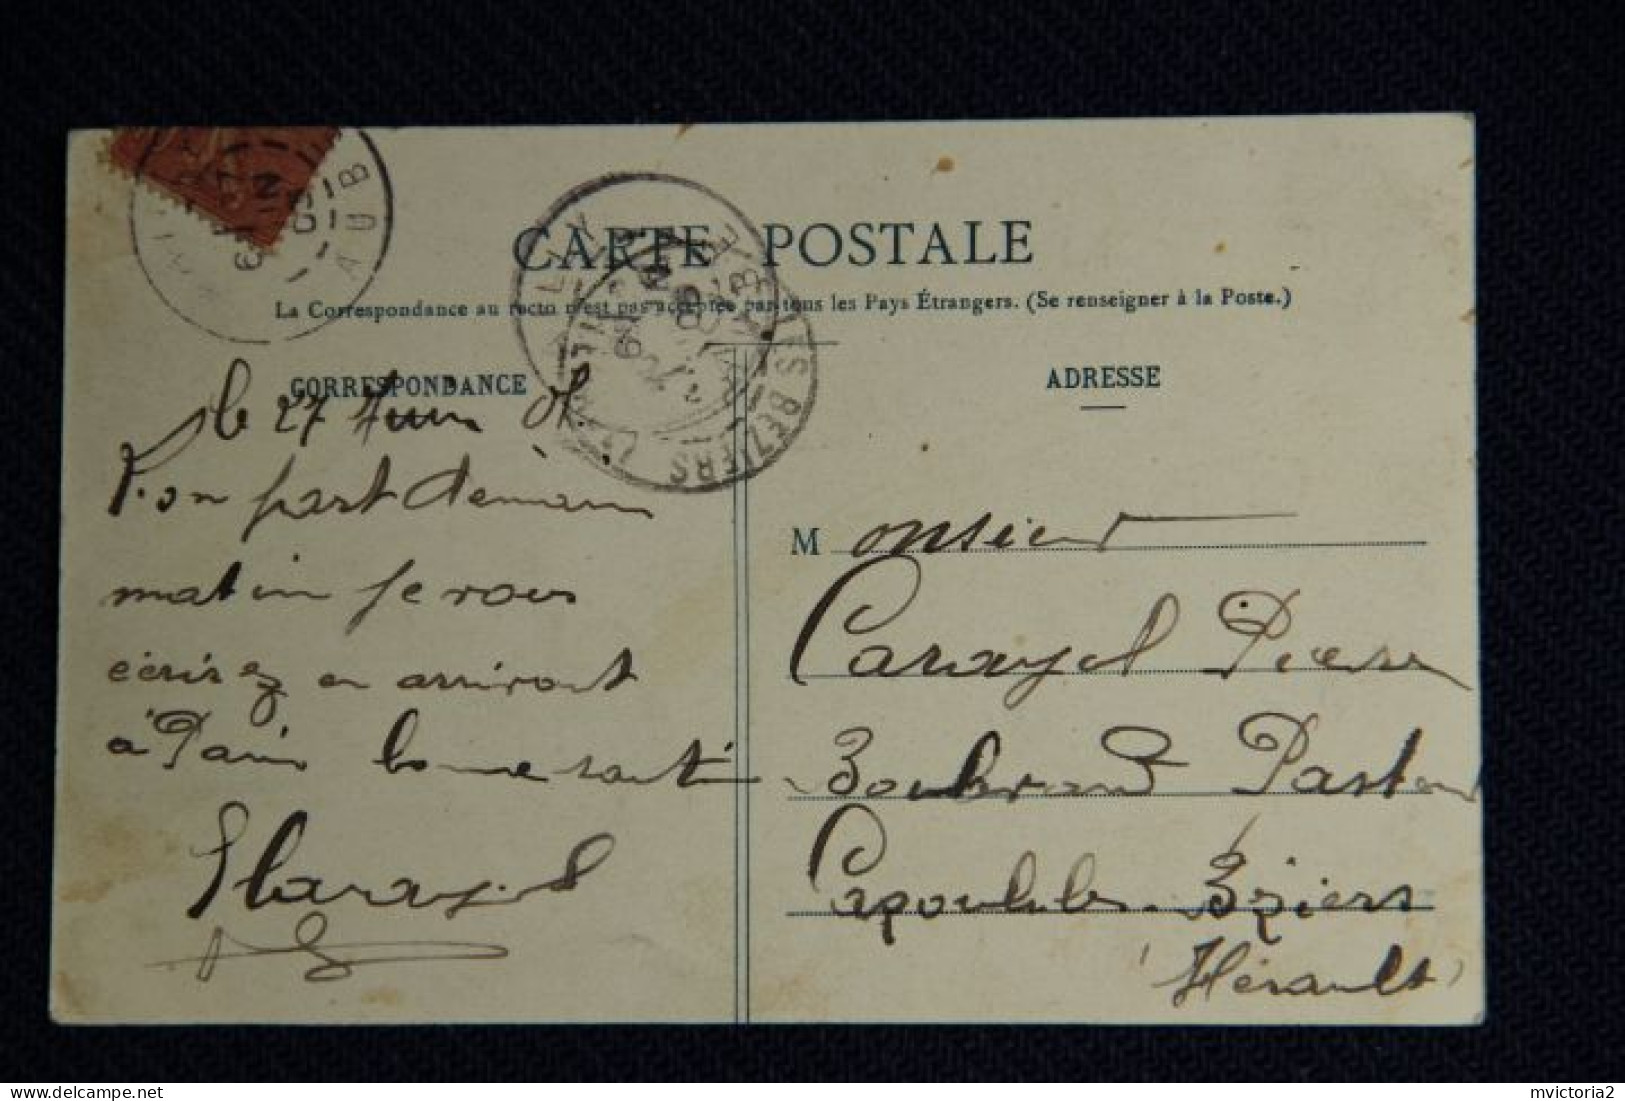 CARTE POSTALE
La Correspondance au recto n'est pas acceptée par tous les Pays Étrangers. (Se renseigner à la Poste.)
CORRESPONDANCE
le 27 Juin
L'on part demain
matin je vous
écrirez en arrivant
à Paris bonne santé
Carayol
ADRESSE
Monsieur
Carayol Pierre
Boulevard Pasteur
Capoulules. Béziers
(Hérault)
AUB
LES BEZIERS
mvictoria2